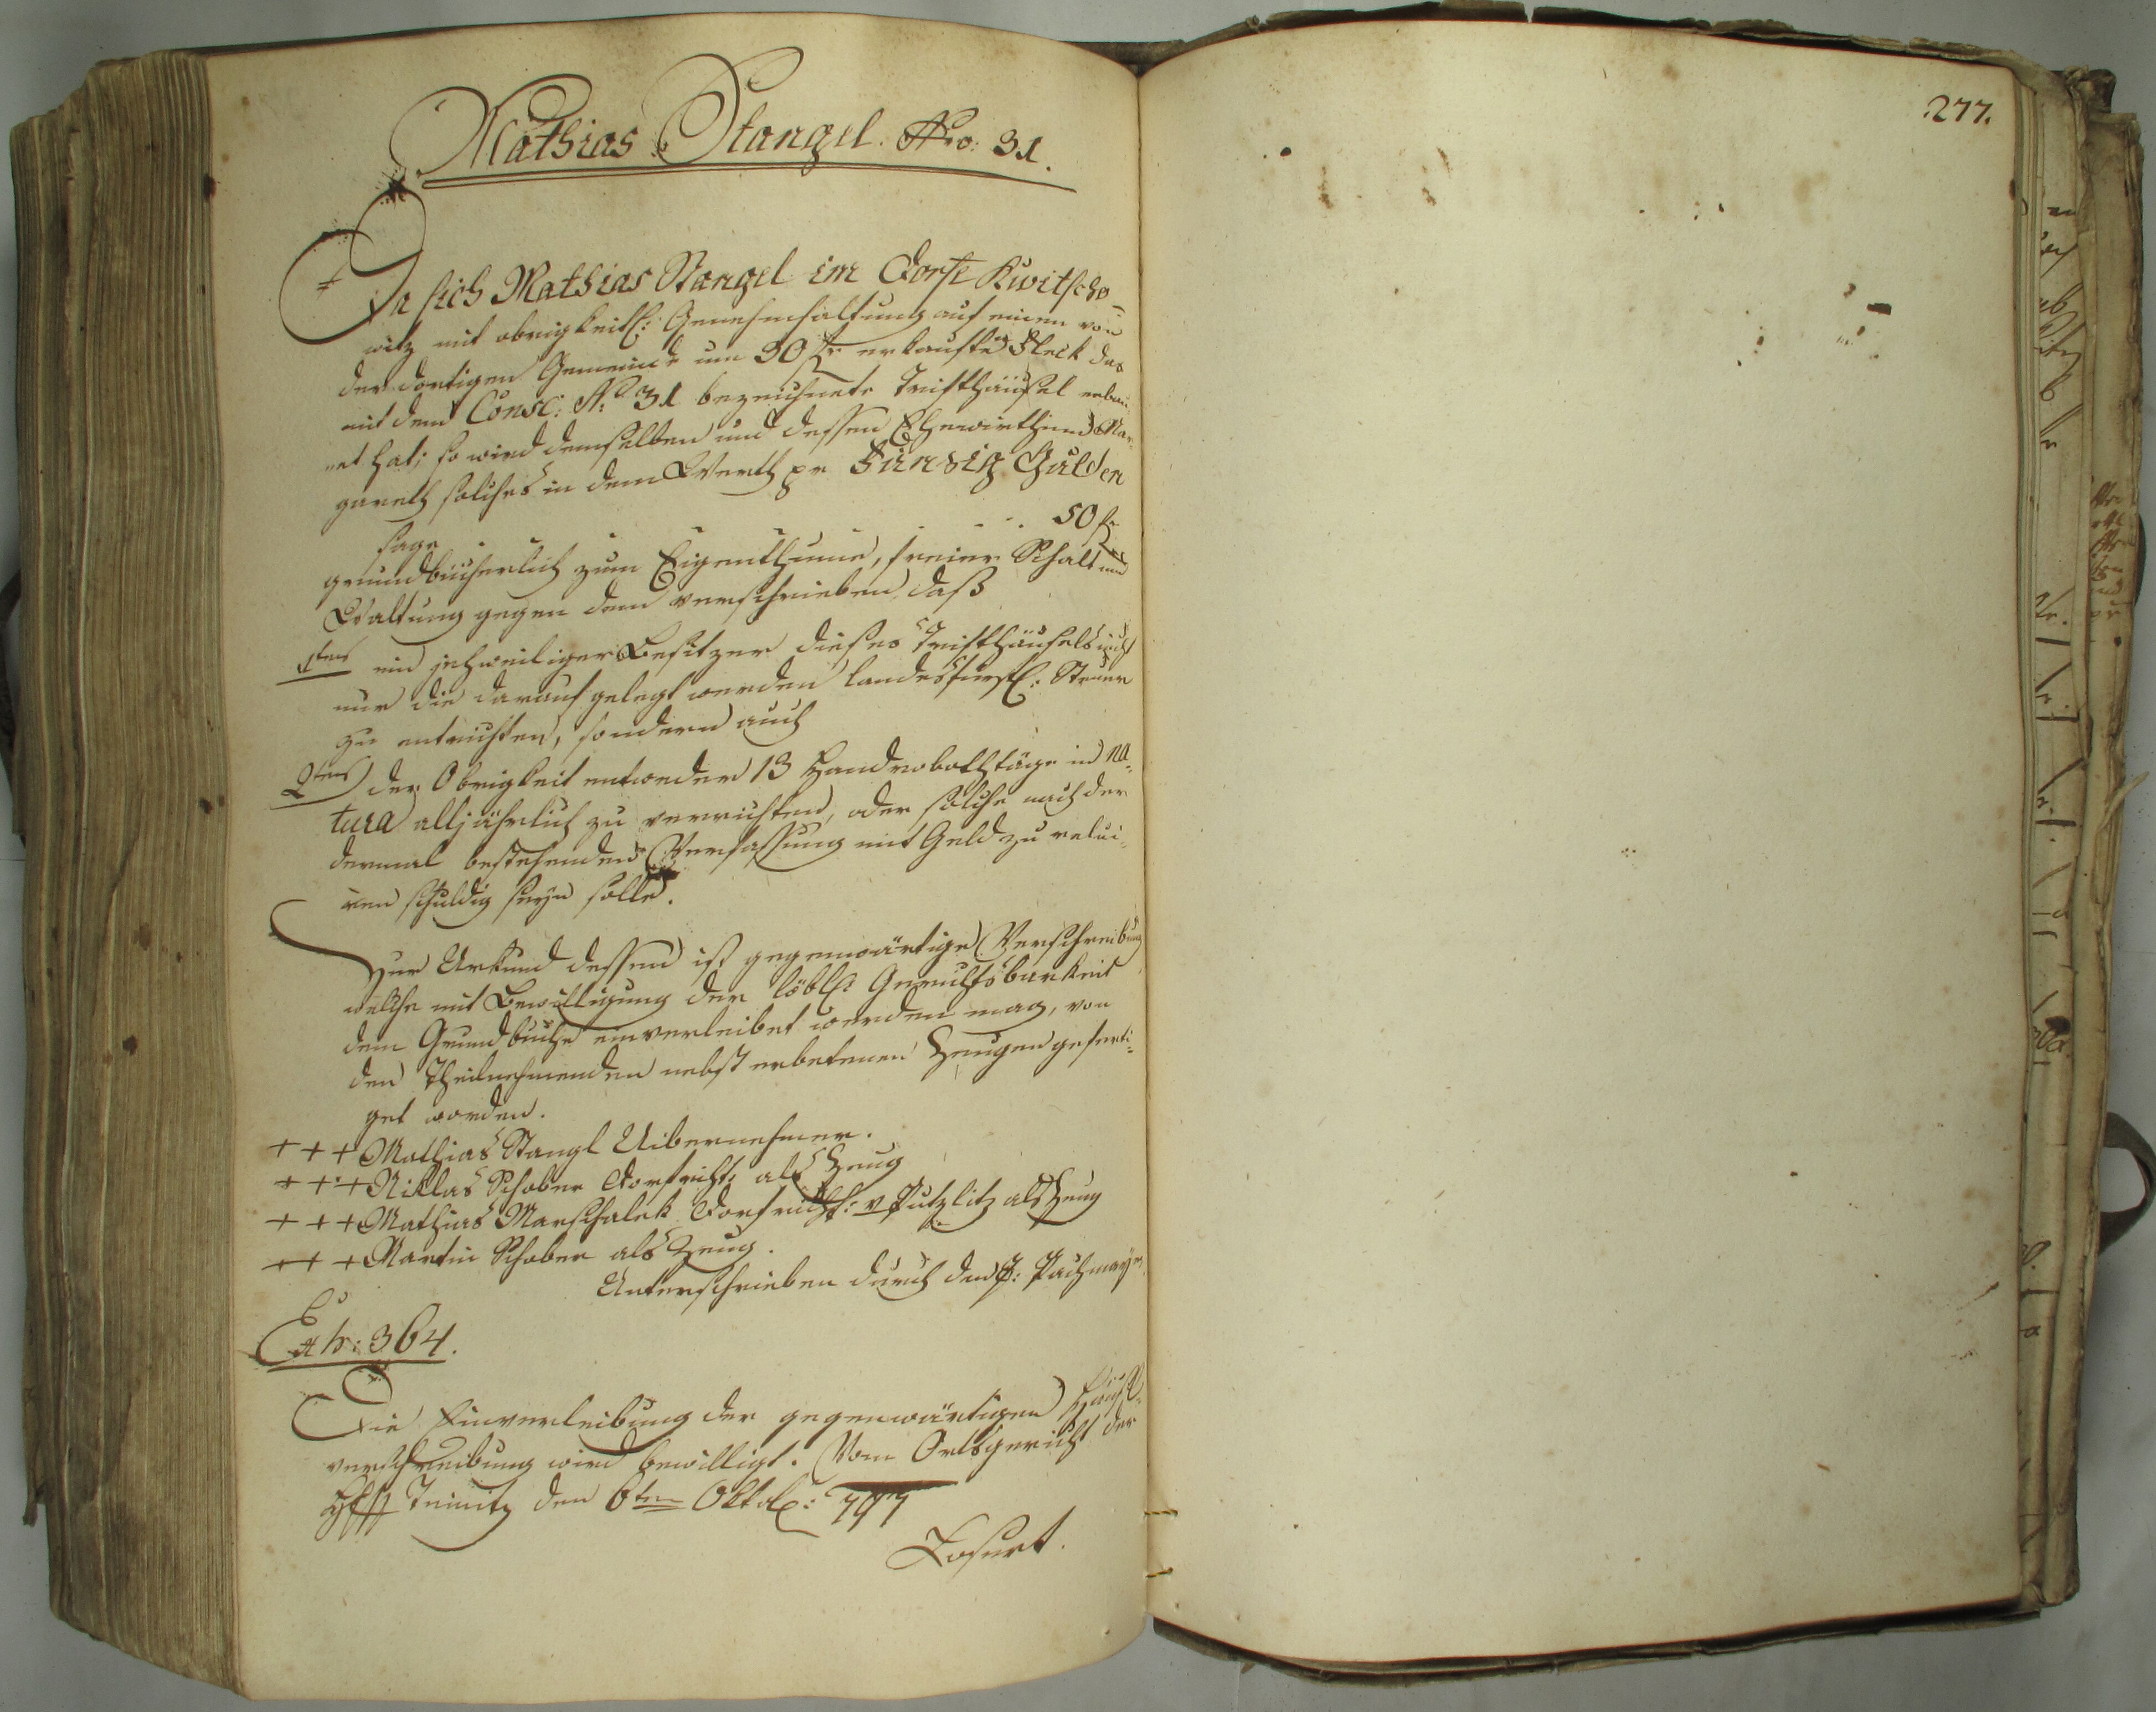 Mathias Stangel. Nro: 31.
Da sich Mathias Stangel im Dorfe Kwitscho-
witz mit obrigkeitl: Genehmhaltung auf einem von
der dortigen Gemeinde um 30 fr erkauften Fleck das
mit dem Consc: N: 31 bezeichnete Trifthäusel erbau-
et hat; so wird demselben und dessen Ehewirthin Mar-
gareth solches in dem Werth pr Funfzig Gulden
sage . . . . 50 fr
grundbücherlich zum Eigenthume, freier Schalt und
Waltung gegen dem verschrieben, daß
1tens ein jehweiliger Besitzer dieses Trifthäusels nicht
nur die darauf gelegt werden landesfürstl: Steuer
zu entrichten, sondern auch
2tens der Obrigkeit entweder 13 Handrobothtäge in na-
tura alljährlich zu verrichten, oder solche nach der
dermal bestehenden Verfassung mit Geld zu relui-
ren schuldig seyn solle.
Zur Urkund dessen ist gegenwärtige Verschreibung
welche mit Bewilligung der löbl: Gerichtsbarkeit
dem Grundbuche einverleibet werden mag, von
den Theilnehmenden nebst erbetenen Zeugen geferti-
get worden.
+ + + Mathias Stangl Uibernehmer.
+ + + Niklas Schober Dorfricht: als Zeug
+ + + Mathias Marschalek Dorfricht: v Putzlitz als Zeug
+ + + Martin Schober als Zeug.
Unterschrieben durch den J: Pachmayr
Exh: 364.
Die Einverleibung der gegenwärtigen Häusl-
verschreibung wird bewilligt. Vom Ortsgericht der
Hfft den 6ten Oktob: 797
Losert.
.277.